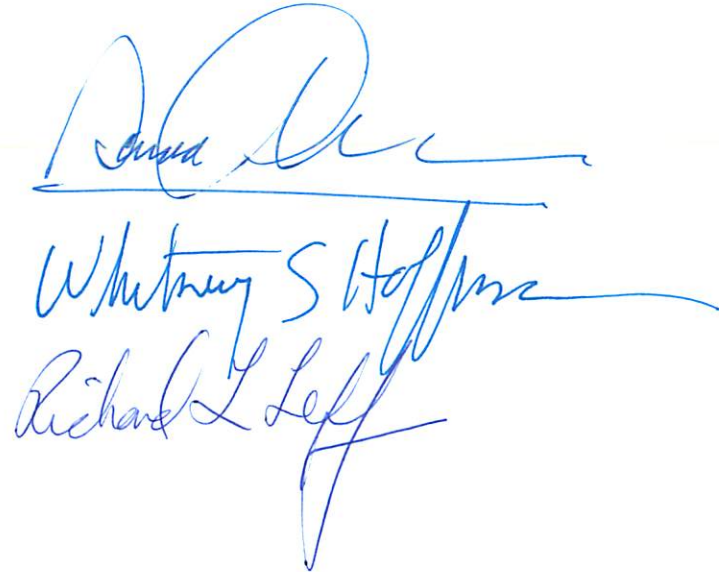 Whitney S Hoffman
Richard L Leff